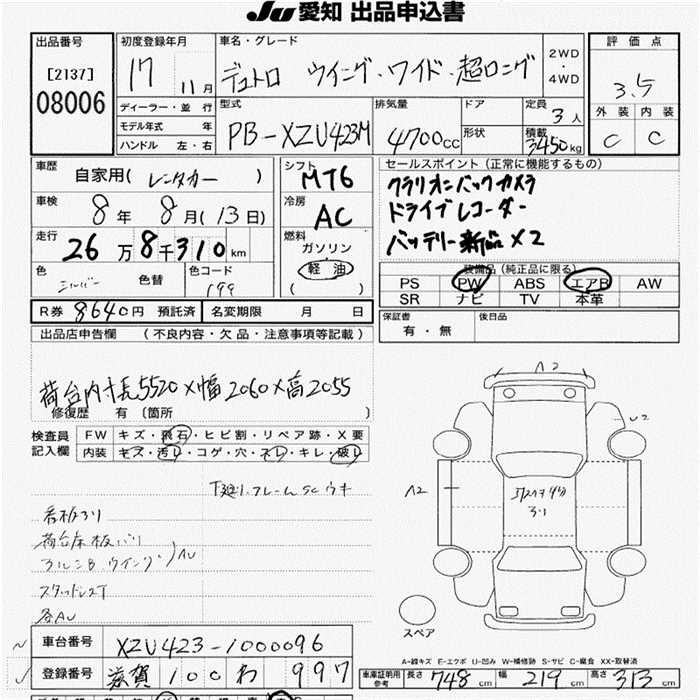 Ju 愛知 出品申込書
出品番号
[2137]
08006
初度登録年月
17 11月
車名・グレード
デュトロ ウイング・ワイド・超ロング
2WD
・
4WD
評価点
3.5
ディーラー・並行
モデル年式 年
ハンドル 左・右
型式
PB-XZU423M
排気量
4700cc
ドア
形状
定員
3人
積載
3450kg
外装 内装
C C
車歴
自家用(レンタカー)
車検
8年 8月(13日)
走行
26万8千310km
色
シルバー
色替
色コード
199
シフト
MT6
冷房
AC
燃料
ガソリン
軽油
( )
セールスポイント(正常に機能するもの)
クラリオンバックカメラ
ドライブレコーダー
バッテリー新品×2
装備品(純正品に限る)
PS PW ABS エアB AW
SR ナビ TV 本革
R券 8640円 預託済
名変期限 月 日
保証書
有・無
後日品
出品店申告欄 (不良内容・欠品・注意事項等記載)
荷台内寸長5520×幅2060×高2055
修復歴 有 (箇所 )
検査員
記入欄
FW キズ・飛石・ヒビ割・リペア跡・X要
内装 キズ・汚れ・コゲ・穴・スレ・キレ・破レ
下廻り、フレームSCウキ
看板有り
荷台床板バリ
アルミB ウイング AU
スタッドレスT
各AU
A2
A2
U2
スペア
A-線キズ E-エクボ U-凹み W-補修跡 S-サビ C-腐食 XX-取替済
車台番号
XZU423-1000096
登録番号
滋賀 100 わ 997
車庫証明用
参考
長さ 748cm 幅 219cm 高さ 313cm